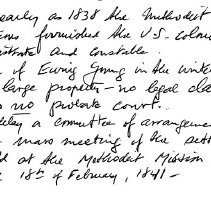 early as 1838 the Methodist
furnished the U.S. colon
istrate and constable.
of Ewing Young in the winte
large property - no legal clai
no probate court.
delay a committee of arrangeme
mass meeting of the sett
d at the Methodist Mission
18th of February, 1841 -